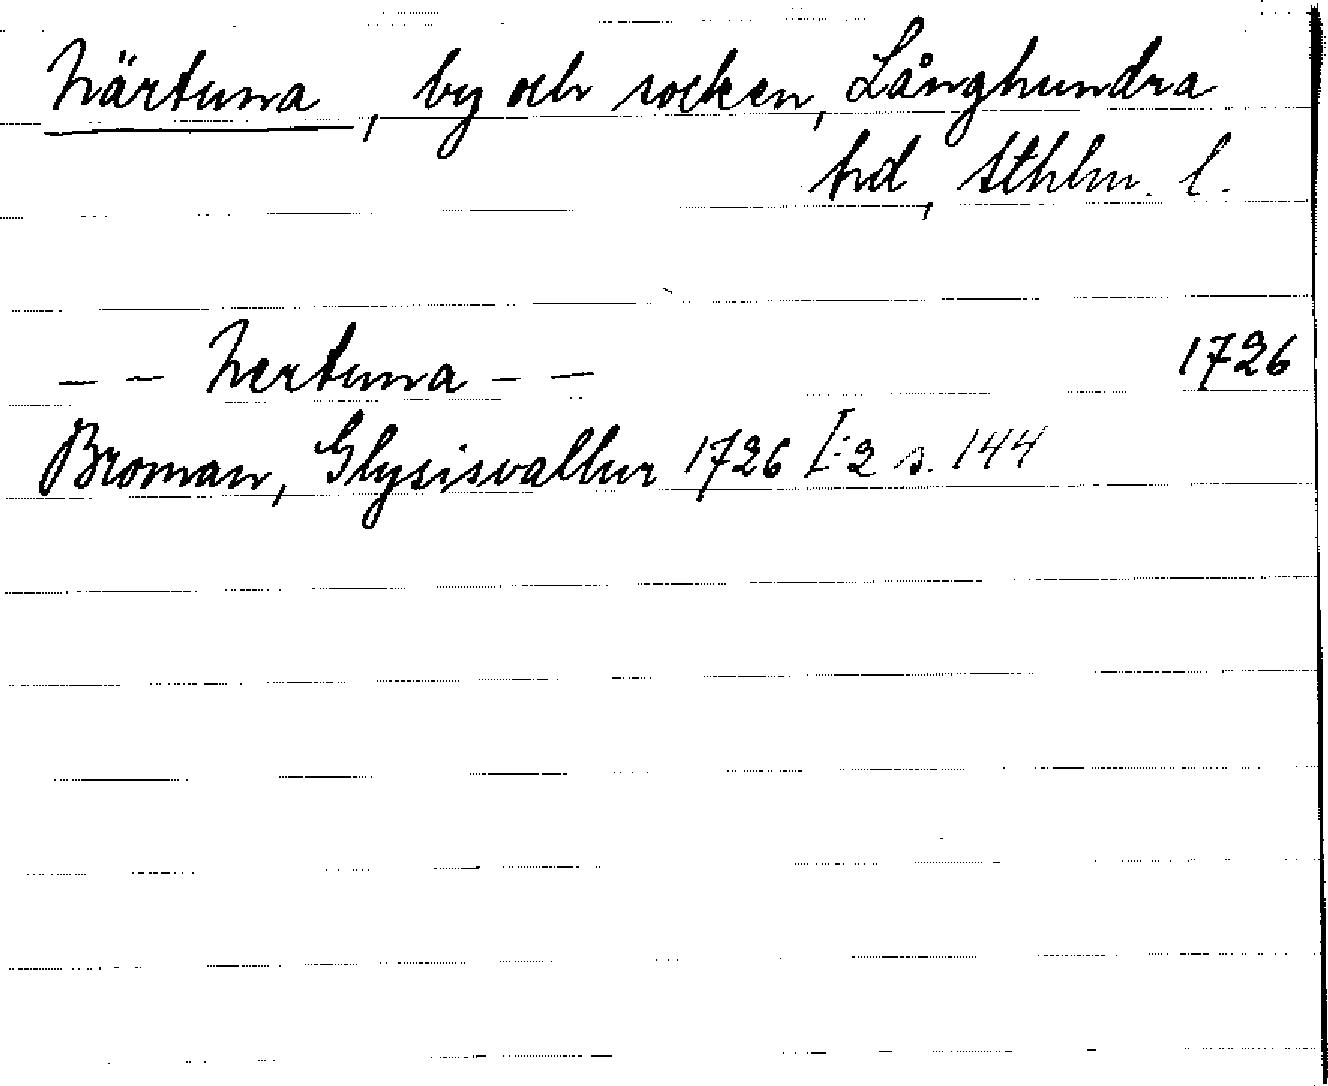 Närtuna, by och socken, Långhundra
hd, Sthlm. l.
– – Nertuna – – 1726
Broman, Glysisvallur 1726 I:2 s. 144